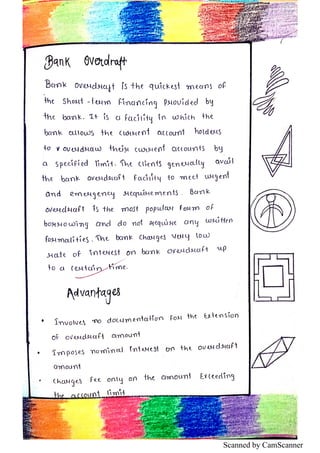 Bank Overdraft
Bank overdraft is the quickest means of
the short-term financing provided by
the bank. It is a facility in which the
bank allows the current account holders
to overdraw their current accounts by
a specified limit. The clients generally avail
the bank overdraft facility to meet urgent
and emergency requirements. Bank
overdraft is the most popular form of
borrowing and do not require any written
formalities. The bank charges very low
rate of interest on bank overdraft up
to a certain time.
Advantages
• Involves no documentation for the extension
of overdraft amount
• Imposes nominal interest on the overdraft
amount
• charges fee only on the amount Exceeding
the account limit
Scanned by CamScanner